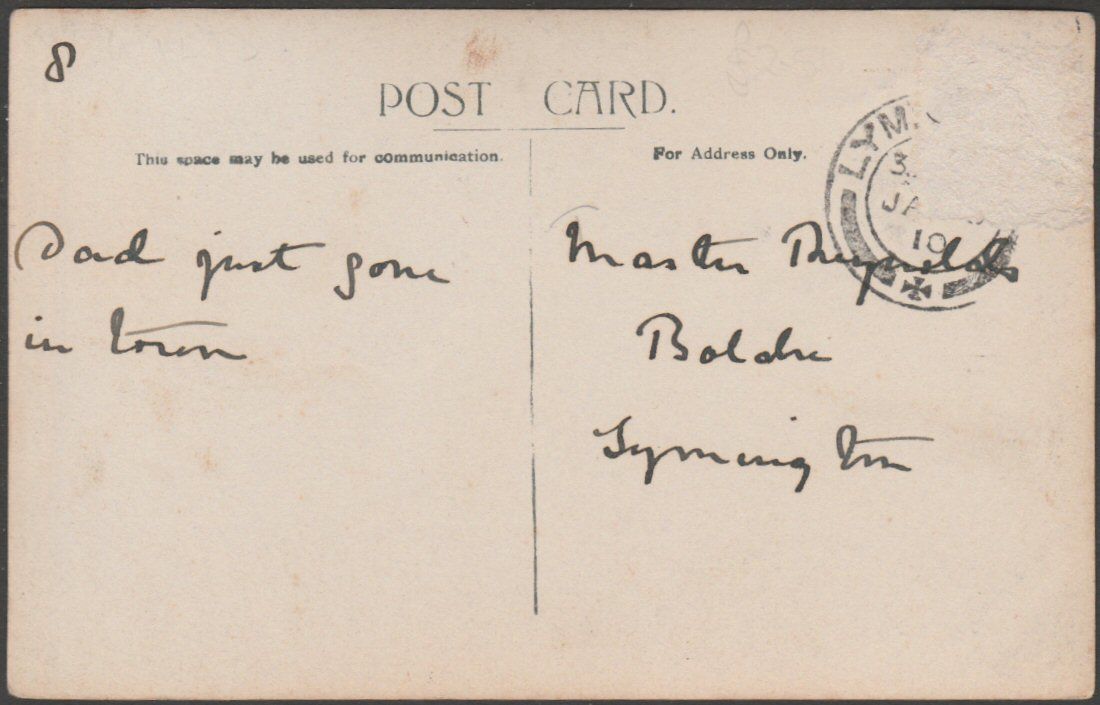 8
POST CARD.
This space may be used for communication.
For Address Only.
LYM
3
JA
10
Dad just gone
in town
Master Reynolds
Boldre
Lymington